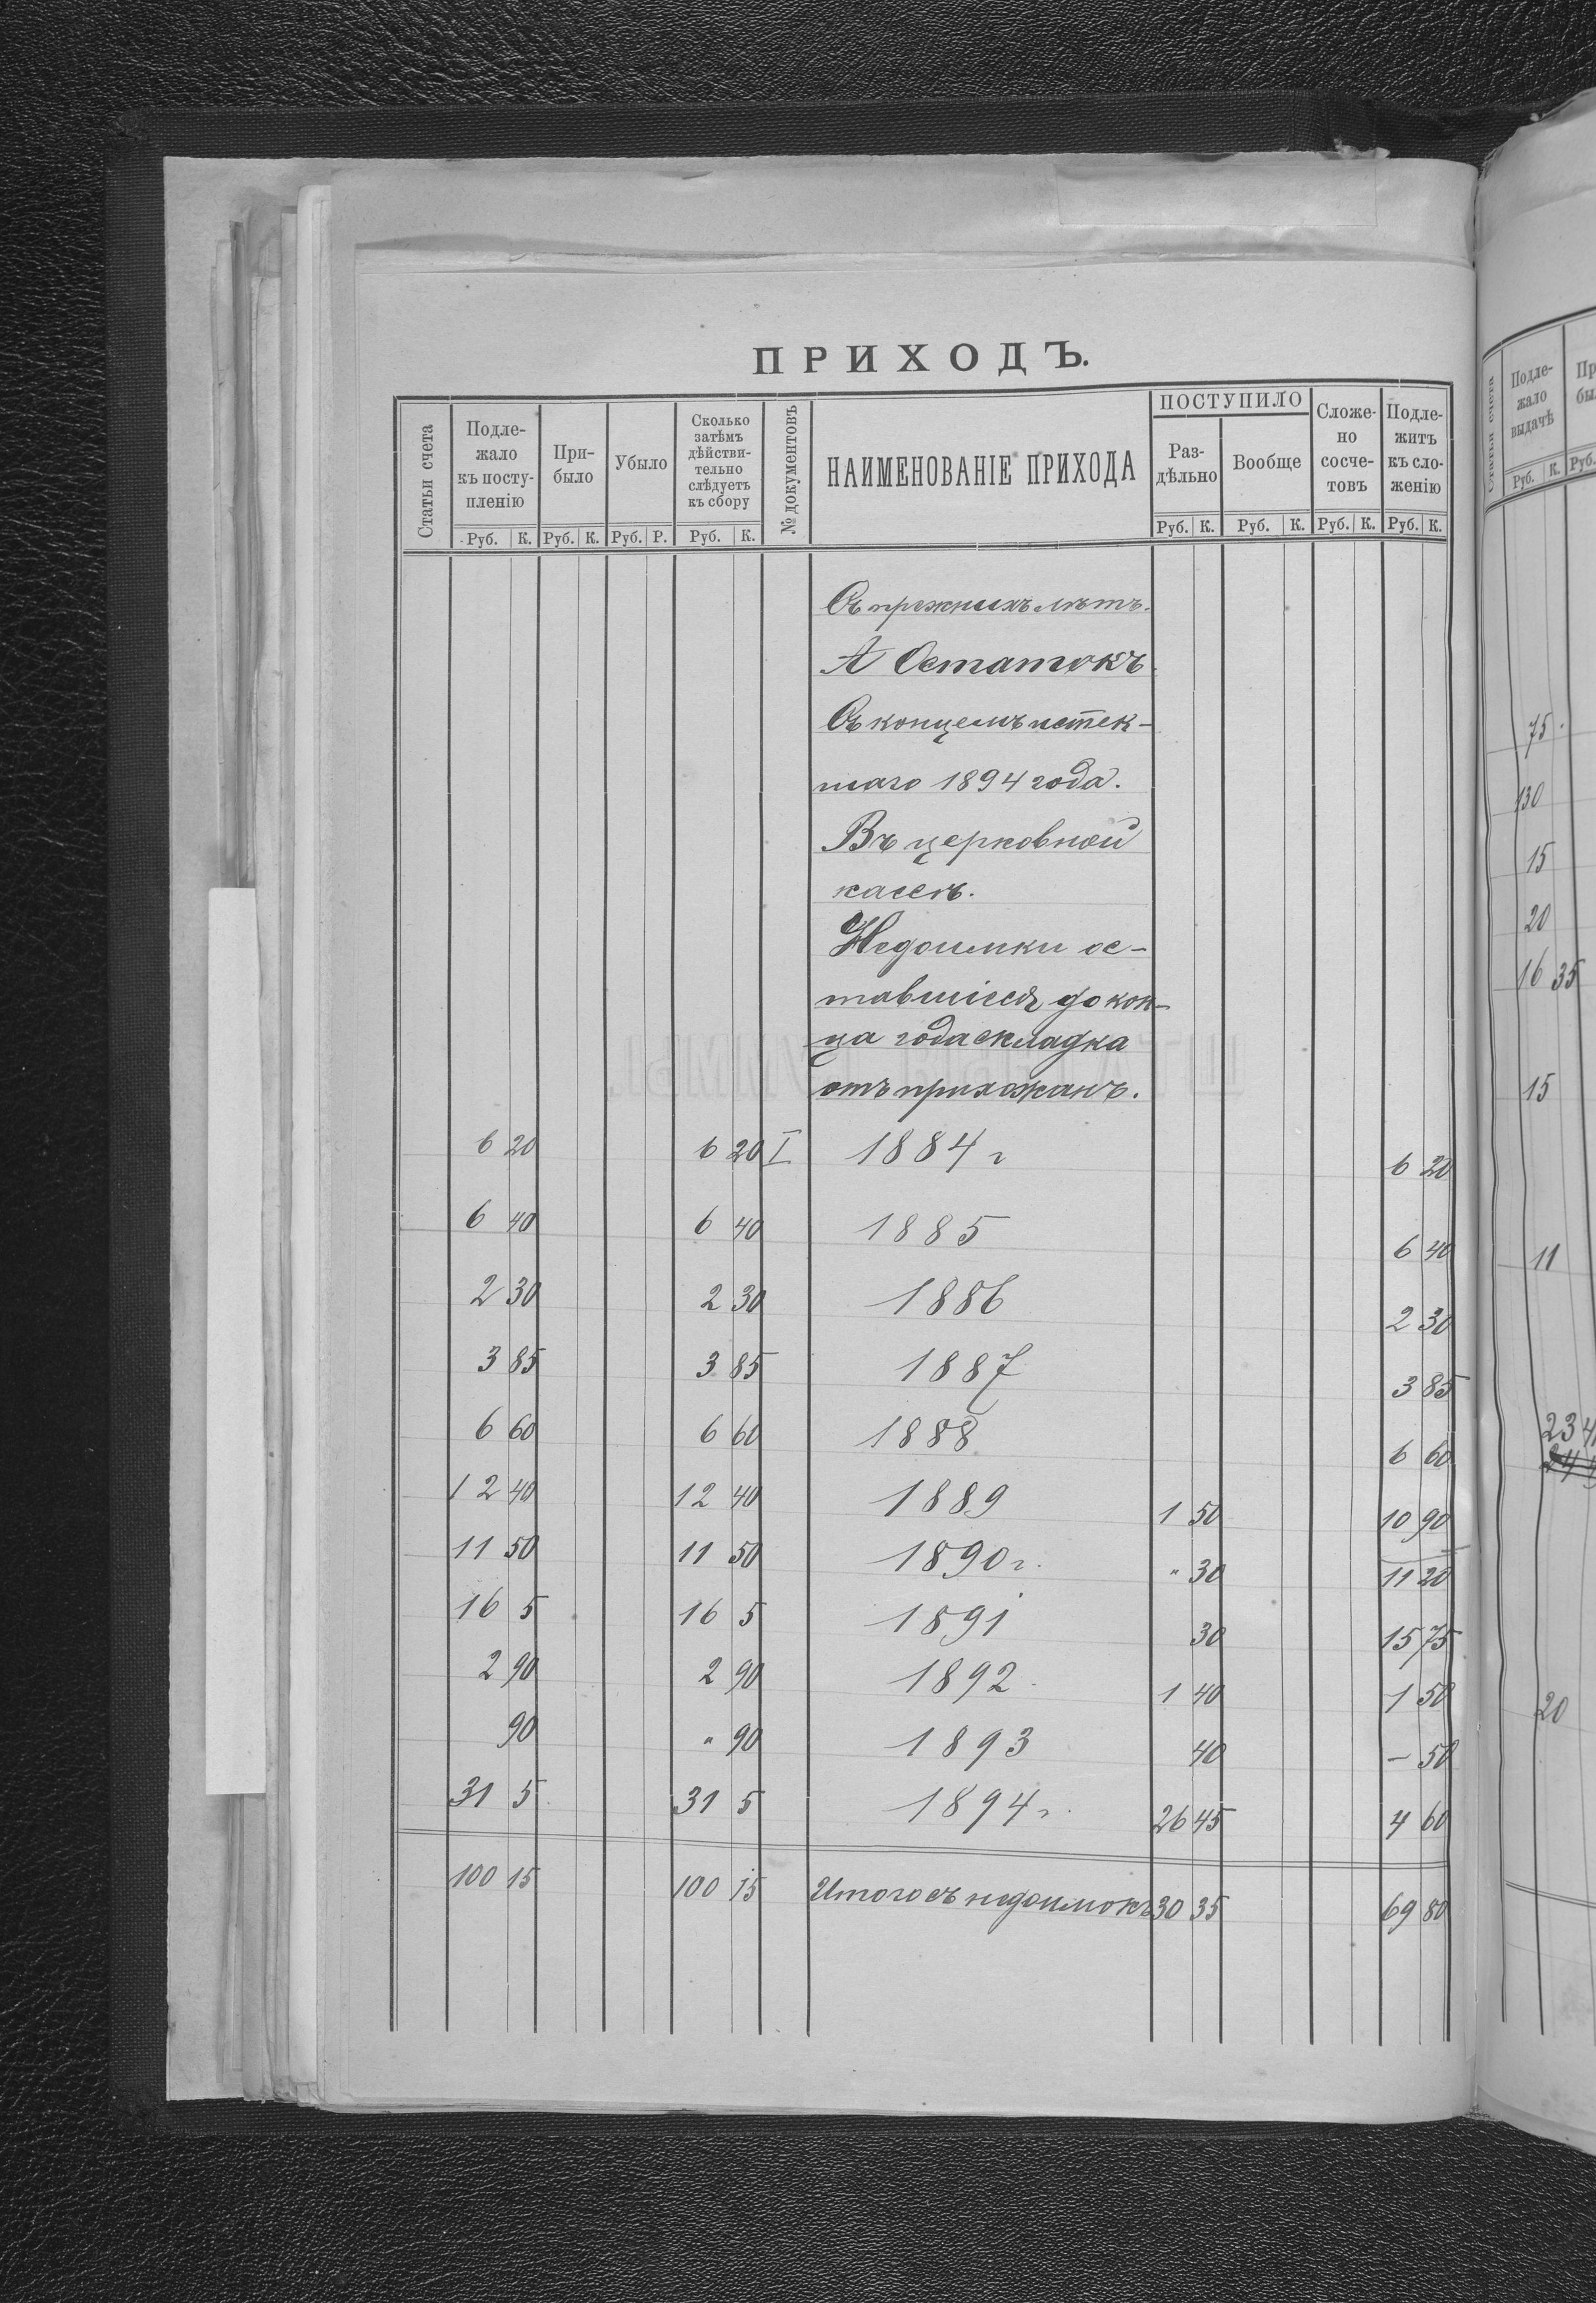 ПРИХОДЪ.
Статьи счета
Подле-
жало
къ посту-
пленію
При-
было
Убыло
Сколько
затѣмъ
дѣйстви-
тельно
слѣдуетъ
къ сбору
№ документовъ
НАИМЕНОВАНІЕ ПРИХОДА
ПОСТУПИЛО
Раз-
дѣльно
Вообще
Сложе-
но
сосче-
товъ
Подле-
житъ
къ сло-
женію
Руб. К. Руб. К. Руб. Р. Руб. К. Руб. К. Руб. К. Руб. К. Руб. К.
Съ прежнихъ лѣтъ.
А Остатокъ
Съ концемъ истек-
шаго 1894 года.
Въ церковной
кассѣ.
Недоимки ос-
тавшіеся до кон-
ца года складка
отъ прихожанъ.
6 20 6 20 I 1884 г 6 20
6 40 6 40 1885 6 40
2 30 2 30 1886 2 30
3 85 3 85 1887 3 85
6 60 6 60 1888 6 60
12 40 12 40 1889 1 50 10 90
11 50 11 50 1890 г. " 30 11 20
16 5 16 5 1891 30 15 75
2 90 2 90 1892 1 40 1 50
90 " 90 1893 40 – 50
31 5 31 5 1894 г. 26 45 4 60
100 15 100 15 Итого съ недоимокъ 30 35 69 80
Статьи счета
Подле-
жало
выдачѣ
Руб. К. Руб.
75
130
15
20
16 35
15
11
23 4
20